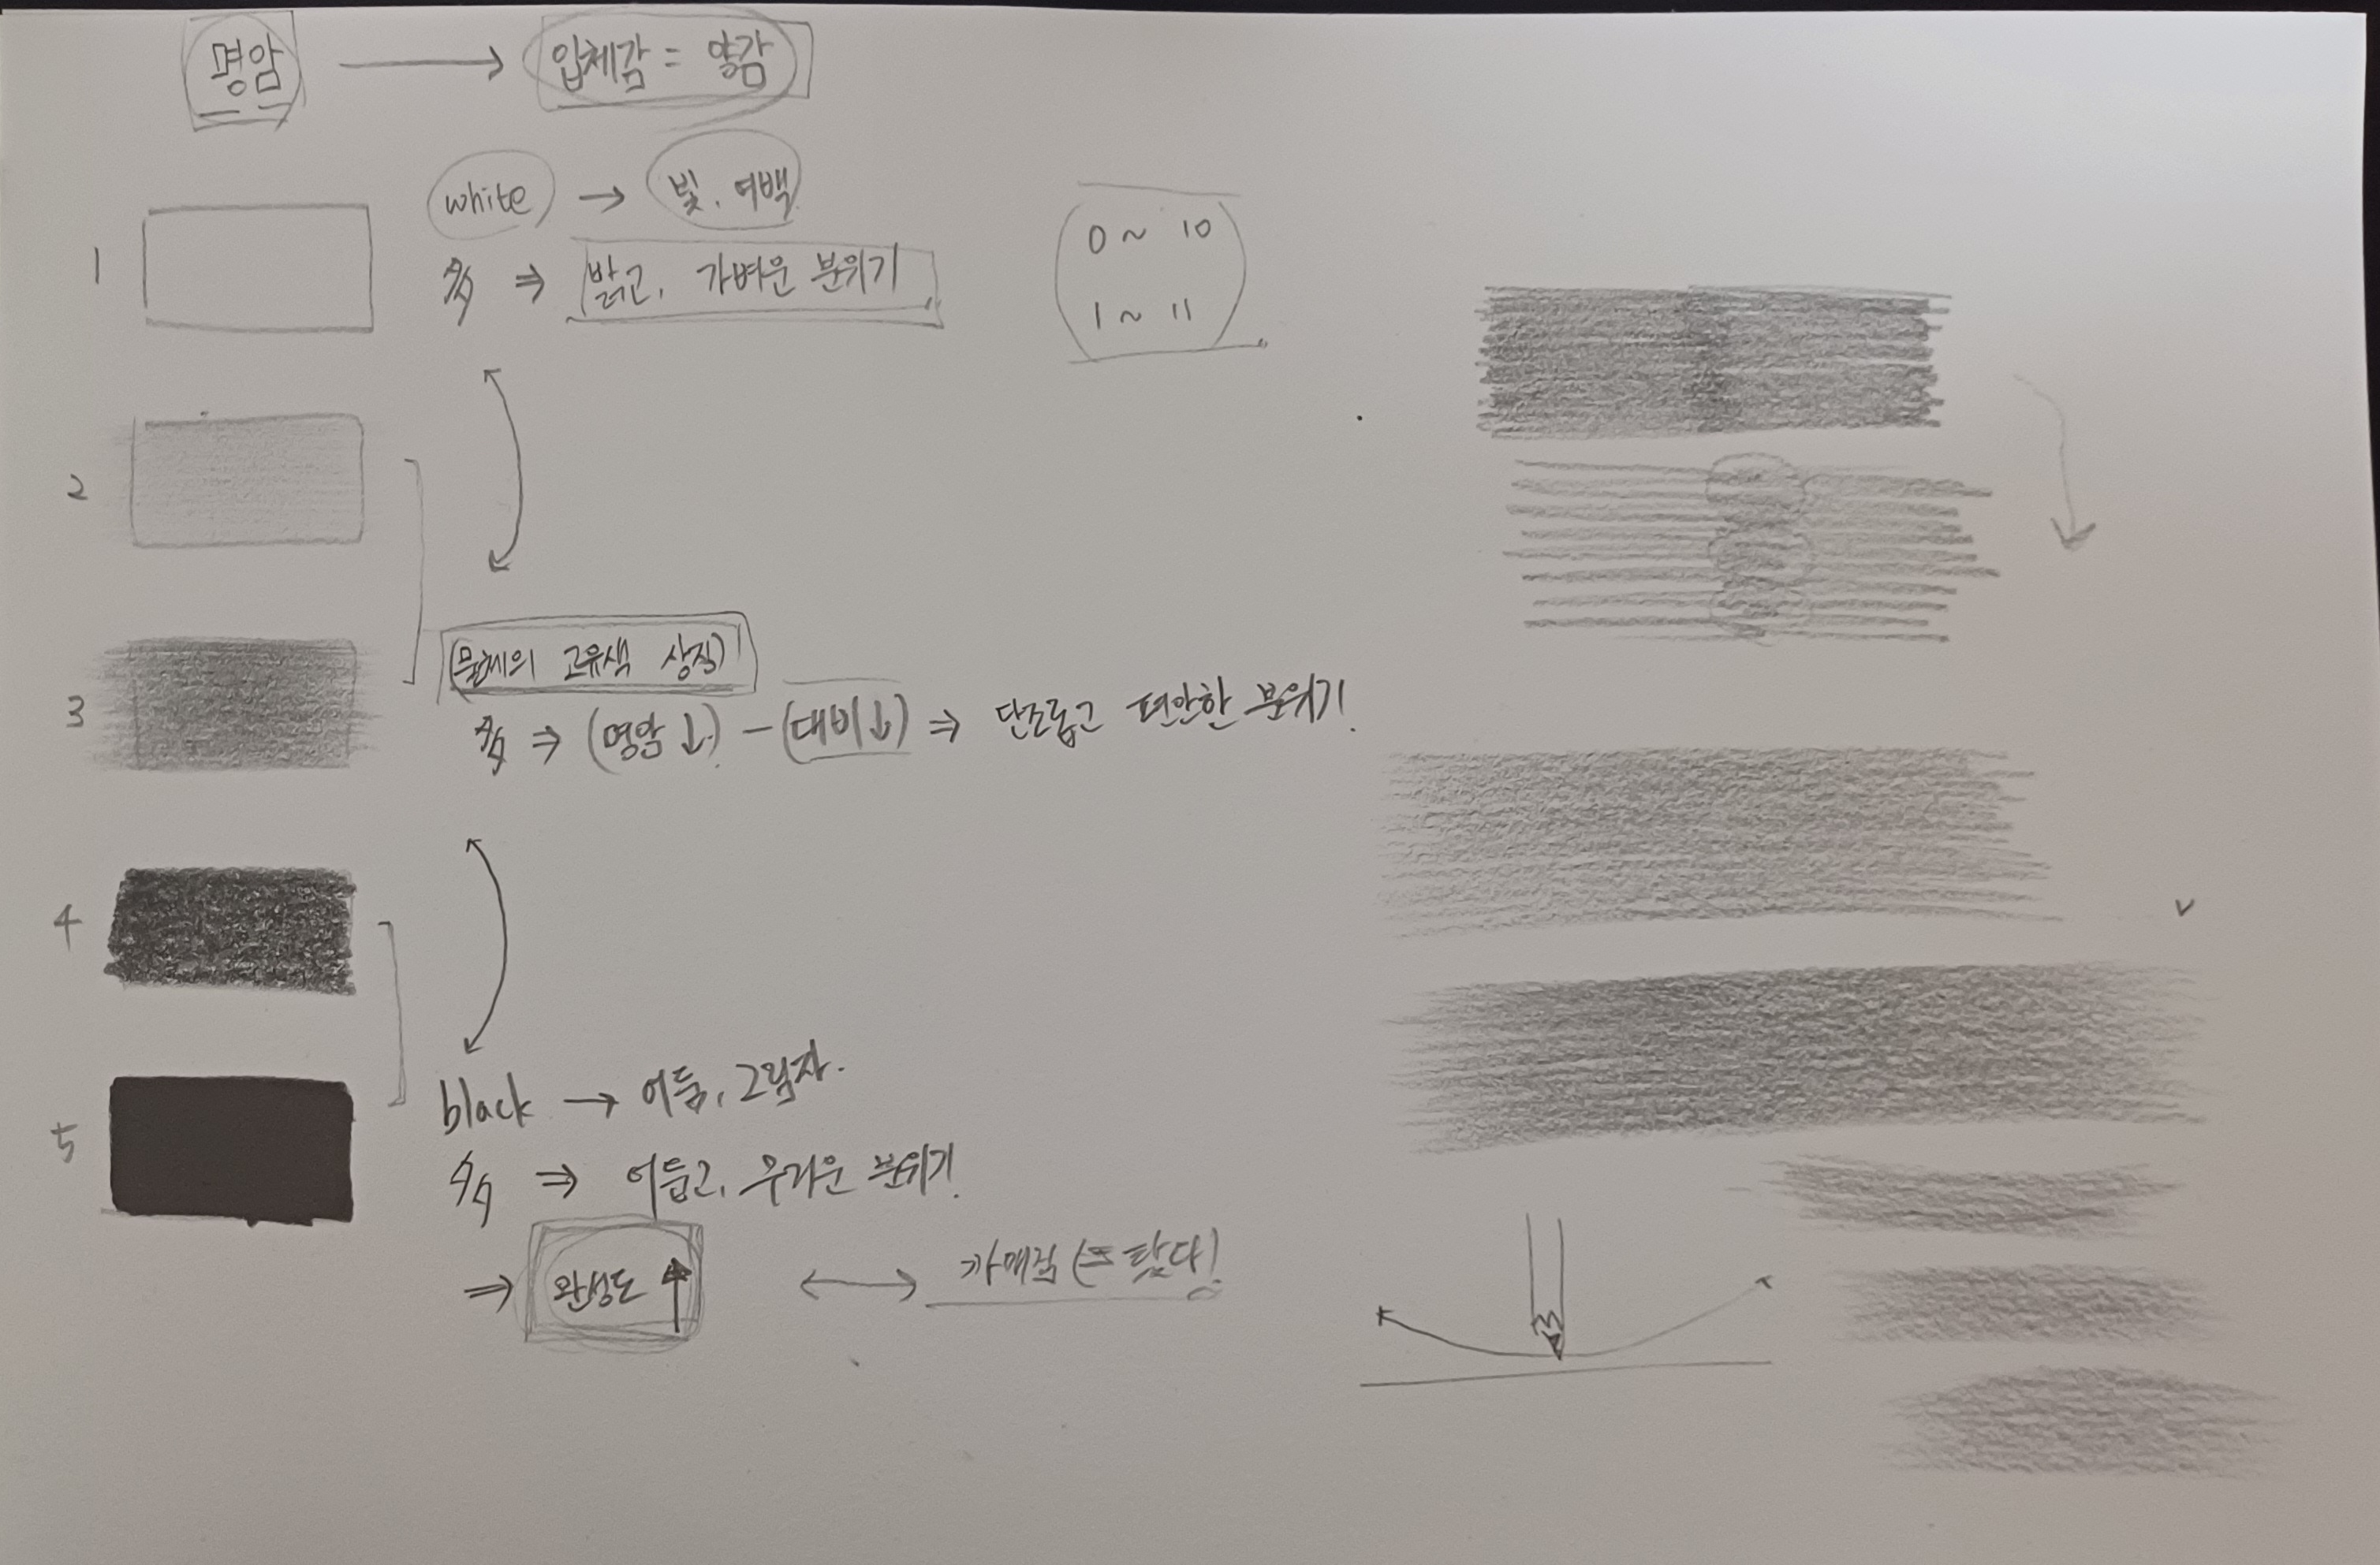 명암 → 입체감 = 양감
white → 빛, 여백
1
多 ⇒ 밝고, 가벼운 분위기
0 ~ 10
1 ~ 11
2
(물체의 고유색 상징)
3
多 ⇒ (명암↓) - (대비↓) ⇒ 단조롭고 편안한 분위기.
4
black → 어둠, 그림자.
5
多 ⇒ 어둡고, 무거운 분위기.
⇒ 완성도 ↑ ↔ 까매짐 (= 탔다)